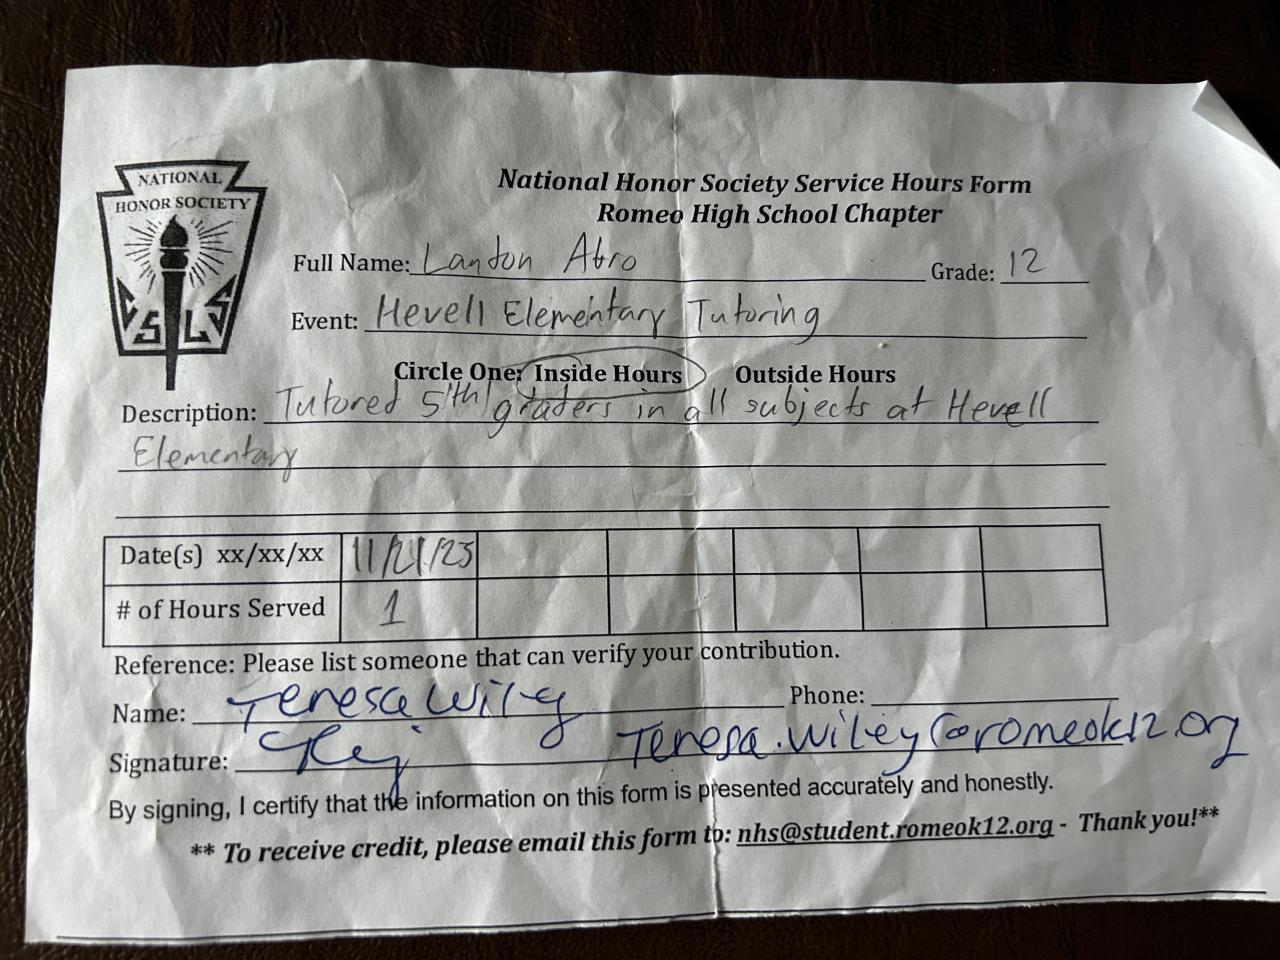 NATIONAL
HONOR SOCIETY
C S L S
National Honor Society Service Hours Form
Romeo High School Chapter
Full Name: Landon Abro Grade: 12
Event: Hevell Elementary Tutoring
Circle One: Inside Hours Outside Hours
Description: Tutored 5th graders in all subjects at Hevell
Elementary
Date(s) xx/xx/xx 11/21/25
# of Hours Served 1
Reference: Please list someone that can verify your contribution.
Name: Teresa Wiley Phone:
Signature: Teresa.wiley@romeok12.org
By signing, I certify that the information on this form is presented accurately and honestly.
** To receive credit, please email this form to: nhs@student.romeok12.org - Thank you!**